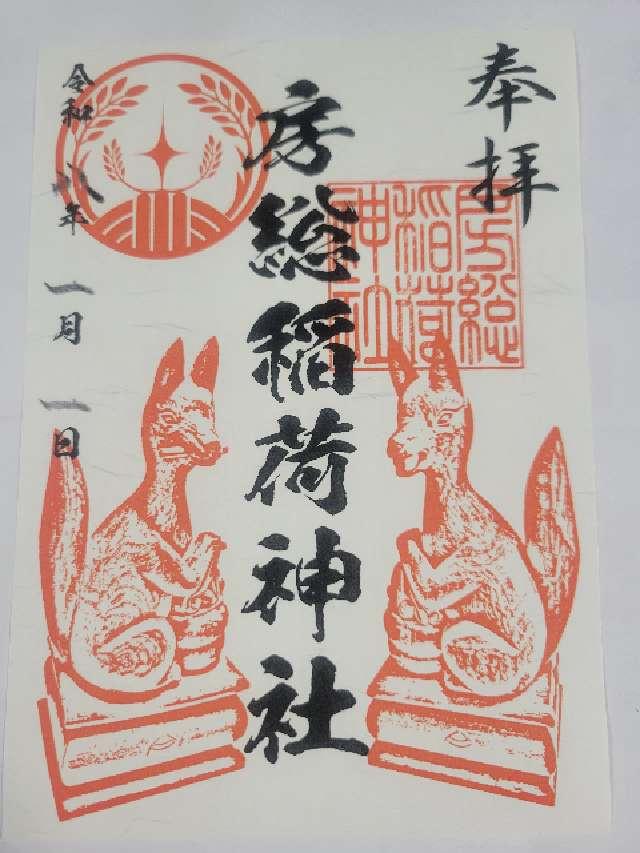 奉拝
房総稲荷神社
房総
稲荷
神社
令和八年一月一日